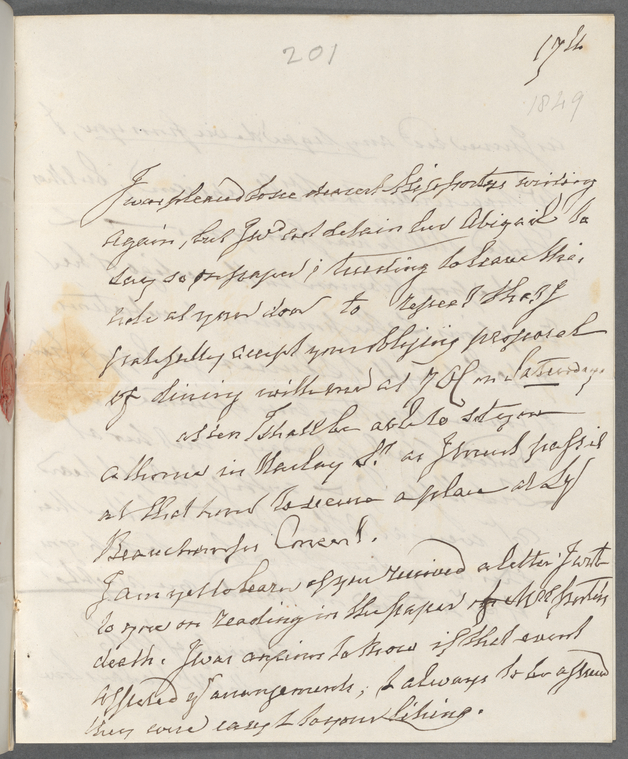 201
17th
1849
I was pleased to see dearest Miss Porter's writing
again, but I wd not detain her Abigail to
say so on paper; trusting to leave this
note at your door to repeat that I
gratefully accept your obliging proposal
of dining with me at 7 O'C on Saturday,
as then I shall be able to set you
at home in Harley St. as I must pass it
at that hour to secure a place at Ly
Beauchamp's Concert.
I am yet to learn if you received a letter I writ
to you on reading in the paper of Mrs Porter's
death. I was anxious to know if that event
affected yr arrangements; & always to be assured
they were easy & to your liking.